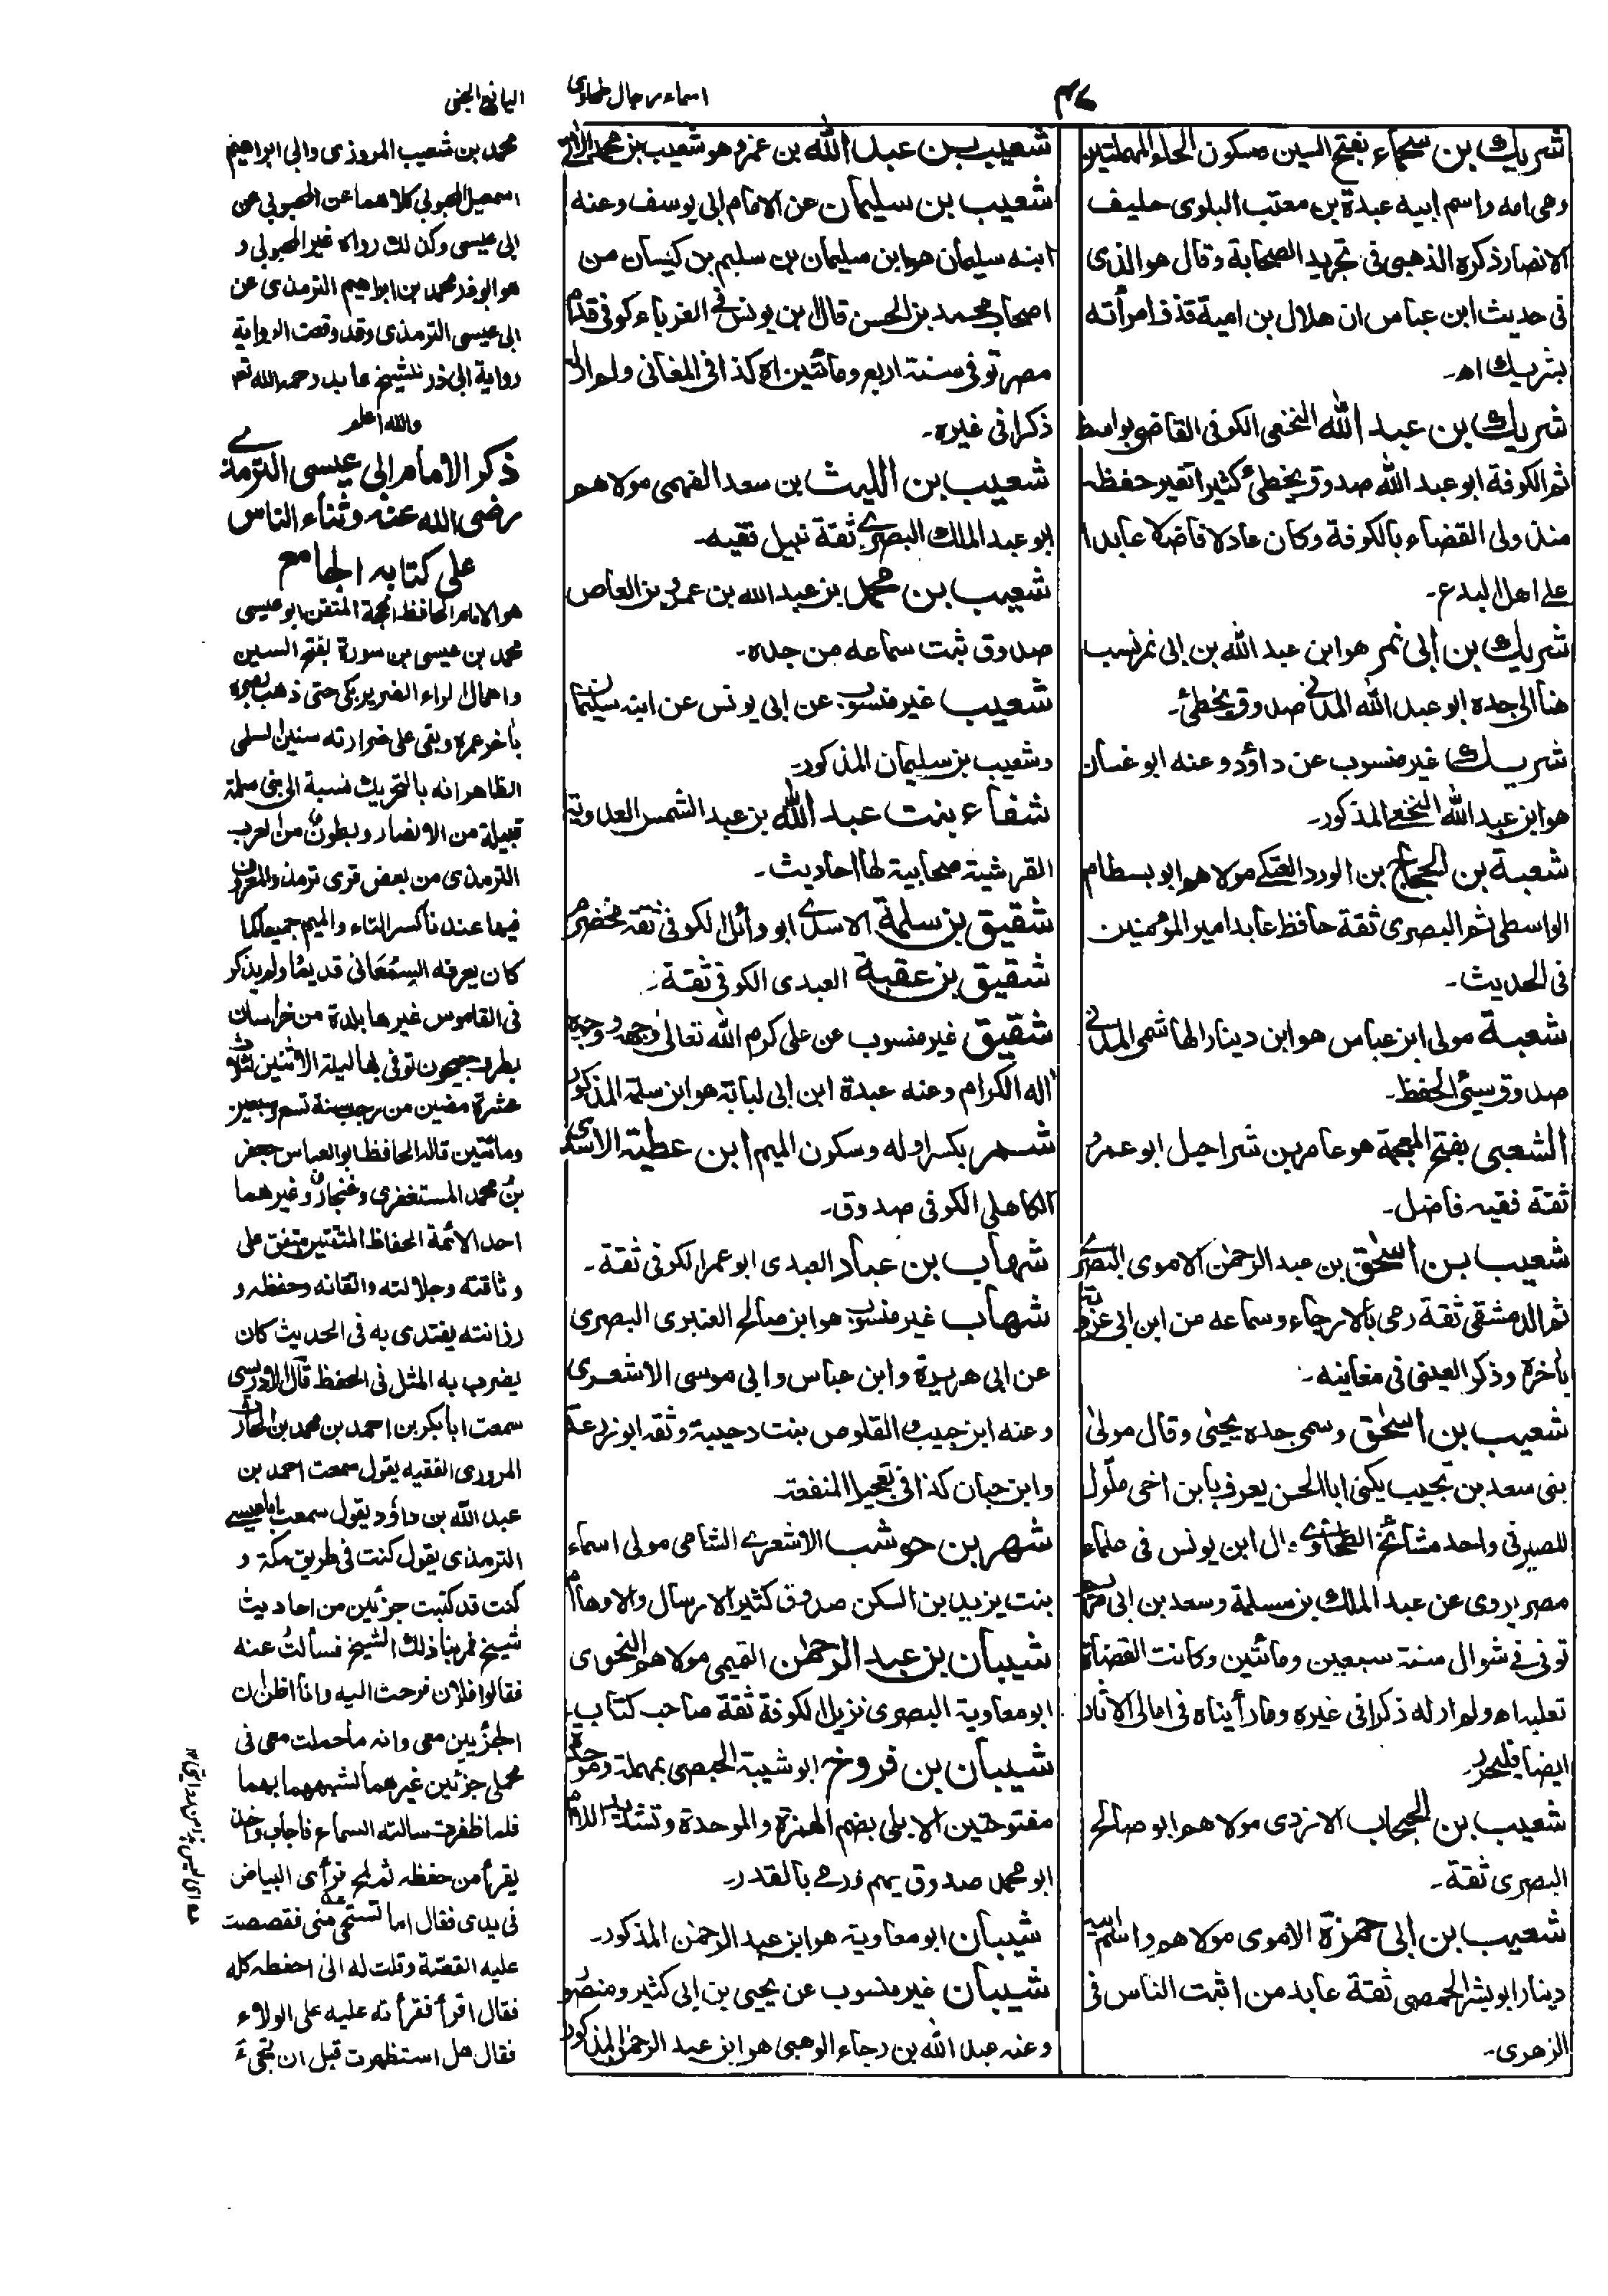 ٤٧
اسماء رجال طحاوی
اليانع الجنی
شريك بن سحماء بفتح السين وسكون الحاء المهملتين
وهی امه واسم ابيه عبدة بن معتب البلوی حليف
الانصار ذكره الذهبی فی تجريد الصحابة وقال هو الذی
فی حديث ابن عباس ان هلال بن امية قذف امرأته
بشريك اه۔
شريك بن عبد الله النخعی الكوفی القاضی بواسط
ثم الكوفة ابو عبد الله صدوق يخطئ كثيرا تغير حفظه
منذ ولی القضاء بالكوفة وكان عادلا فاضلا عابدا
علے اهل البدع۔
شريك بن ابی نمر هو ابن عبد الله بن ابی نمر نسب
هنا الی جده ابو عبد الله المدنی صدوق يخطئ۔
شريك غير منسوب عن داؤد وعنه ابو غسان
هو ابن عبد الله النخعی المذكور۔
شعبة بن الحجاج بن الورد العتكے مولاهم ابو بسطام
الواسطی ثم البصری ثقة حافظ عابد امير المؤمنين
فی الحديث۔
شعبة مولی ابن عباس هو ابن دينار الهاشمی المدنی
صدوق سيئ الحفظ۔
الشعبی بفتح المعجمة هو عامر بن شراحيل ابو عمرو
ثقة فقيه فاضل۔
شعيب بن اسحٰق بن عبد الرحمٰن الاموی البصری
ثم الدمشقی ثقة رمی بالارجاء وسماعه من ابن ابی عروبة
بأخرة وذكر العينی فی مغانيه۔
شعيب بن اسحٰق وسمی جده يحيیٰ وقال مولیٰ
بنی سعد بن تجيب يكنی ابا الحسن يعرف يابن اخی ملّول
للصيرفی واحد مشائخ الطحاوی قال ابن يونس فی علماء
مصر يروی عن عبد الملك بن مسلمة وسعد بن ابی مريم
توفی فی شوال سنة سبعين ومائتين وكانت القضاة
تعليه اه ولم ار له ذكرا فی غيره وما رأيناه فی امالی الاثار
ايضا فليحرر۔
شعيب بن الحبحاب الازدی مولاهم ابو صالح
البصری ثقة۔
شعيب بن ابی حمزة الاموی مولاهم واسم ابيه
دينار ابو بشر الحمصی ثقة عابد من اثبت الناس فی
الزهری۔
شعيب بن عبد الله بن عمرو هو شعيب بن محمد الآتی
شعيب بن سليمان عن الامام ابی يوسف وعنه
ابنه سليمان هو ابن سليمان بن سليم بن كيسان من
اصحاب محمد بن الحسن قال ابن يونس فی الغرباء كوفی قدم
مصر توفی سنة اربع ومائتين اه كذا فی المغانی ولم ار له
ذكرا فی غيره۔
شعيب بن الليث بن سعد الفهمی مولاهم
ابو عبد الملك البصرے ثقة نبيل فقيه۔
شعيب بن محمد بن عبد الله بن عمرو بن العاص
صدوق ثبت سماعه من جده۔
شعيب غير منسوب عن ابی يونس عن ابنه سليمان
وشعيب بن سليمان المذكور۔
شفاء بنت عبد الله بن عبد الشمس العدوية
القرشية صحابية لها احاديث۔
شقيق بن سلمة الاسدے ابو وائل الكوفی ثقة مخضرم
شقيق بن عقبة العبدی الكوفی ثقة۔
شقيق غير منسوب عن علی كرم الله تعالیٰ وجهه ووجوه
اٰله الكرام وعنه عبدة ابن ابی لبابة هو ابن سلمة المذكور
شمر بكسر اوله وسكون الميم ابن عطية الاسدی
الكاهلی الكوفی صدوق۔
شهاب بن عباد العبدی ابو عمر الكوفی ثقة۔
شهاب غير منسوب هو ابن صالح العنبری البصری
عن ابی هريرة وابن عباس وابی موسی الاشعری
وعنه ابن حبيب و القلوص بنت دحيبة وثقه ابو زرعة
وابن حبان كذا فی تعجيل المنفعة۔
شهر بن حوشب الاشعرے الشامی مولی اسماء
بنت يزيد بن السكن صدوق كثير الارسال والاوهام
شيبان بن عبد الرحمٰن التميمی مولاهم النحوی
ابو معاوية البصری نزيل الكوفة ثقة صاحب كتاب۔
شيبان بن فروخ ابو شيبة الحبطی بمهملة وموحدة
مفتوحتين الابلی بضم الهمزة والموحدة وتشديد اللام
ابو محمد صدوق يهم ورمی بالقدر۔
شيبان ابو معاوية هو ابن عبد الرحمٰن المذكور۔
شيبان غير منسوب عن يحيی بن ابی كثير ومنصور
وعنه عبد الله بن رجاء الوهبی هو ابن عبد الرحمٰن المذكور
محمد بن شعيب المروزی وابی ابراهيم
اسمعيل المحبوبی كلاهما عن المحبوبی عن
ابی عيسی وكذلك رواه غير المحبوبی و
هو ابو ذر محمد بن ابراهيم الترمذی عن
ابی عيسی الترمذی وقد وقعت الرواية
رواية ابی ذر للشيخ عابد رحمه الله تعالى
والله اعلم
ذكر الامام ابی عيسی الترمذے
رضی الله عنه وثناء الناس
علی كتابه الجامع
هو الامام الحافظ الحجة المتقن ابو عيسی
محمد بن عيسی بن سورة بفتح السين
واهمال الراء الضرير بكی حتی ذهب بصره
بأخر عمره وبقی علی ضرارته سنين السلمی
الظاهر انه بالتحريك نسبة الی بنی سلمة
قبيلة من الانصار وبطون من العرب
الترمذی من بعض قری ترمذ والمعروف
فيها عندنا كسر التاء والميم جميعا كما
كان يعرفه السمعانی قديما ولم يذكر
فی القاموس غيرها بلدة من خراسان
بطرف جيحون توفی بها ليلة الاثنين لثلاث
عشرة مضين من رجب سنة تسع وسبعين
ومائتين قاله الحافظ ابو العباس جعفر
بن محمد المستغفری وغنجار وغيرهما
احد الائمة الحفاظ المتقنين متفق علی
وثاقته وجلالته واتقانه وحفظه و
رزانته يقتدی به فی الحديث كان
يضرب به المثل فی الحفظ قال الادريسی
سمعت ابا بكر بن احمد بن محمد بن الحارث
المروزی الفقيه يقول سمعت احمد بن
عبد الله بن داؤد يقول سمعت ابا عيسے
الترمذی يقول كنت فی طريق مكة و
كنت قد كتبت جزئين من احاديث
شيخ فمر بنا ذلك الشيخ فسألت عنه
فقالوا فلان فرحت اليه وانا اظن ان
الجزئين معی وانه ما حملت معی فی
محملی جزئين غيرهما لشبههما بهما
فلما ظفرت سالته السماع فاجاب واخذ
يقرأ من حفظه ثم لمح فرأی البياض
فی يدی فقال اما تستحی منی فقصصت
عليه القصة وقلت له انی احفظه كله
فقال اقرأ فقرأته عليه علی الولاء
فقال هل استظهرت قبل ان تجیء